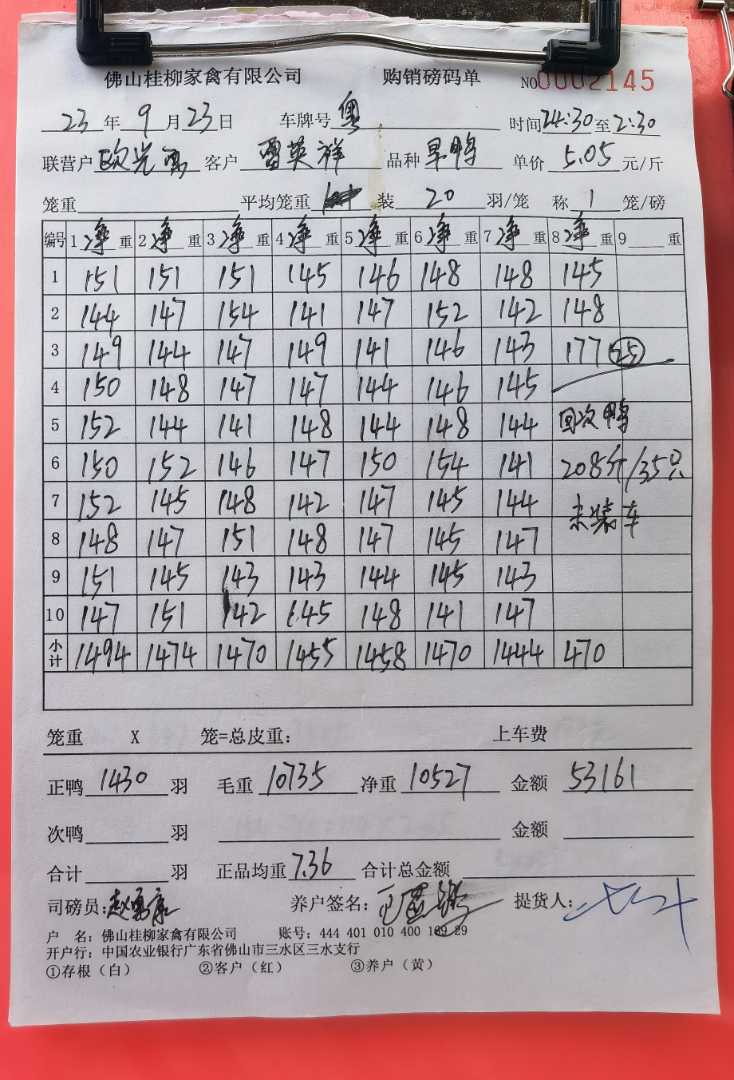 佛山桂柳家禽有限公司 购销磅码单 NO 0002145
23 年 9 月 23 日 车牌号 粤 时间 24:30 至 2:30
联营户 客户 雷英祥 品种 旱鸭 单价 5.05 元/斤
笼重 平均笼重 装 20 羽/笼 称 1 笼/磅
编号 1 净 重 2 净 重 3 净 重 4 净 重 5 净 重 6 净 重 7 净 重 8 净 重 9 重
1 151 151 151 145 146 148 148 145
2 144 147 154 141 147 152 142 148
3 149 144 147 149 141 146 143 177 25
4 150 148 147 147 144 146 145
5 152 144 141 148 144 148 144 回次鸭
6 150 152 146 147 150 154 141 208斤/35只
7 152 145 148 142 147 145 144 未装车
8 148 147 151 148 147 145 147
9 151 145 143 143 144 145 143
10 147 151 142 145 148 141 147
小计 1494 1474 1470 1455 1458 1470 1444 470
笼重 X 笼=总皮重： 上车费
正鸭 1430 羽 毛重 10735 净重 10527 金额 53161
次鸭 羽 金额
合计 羽 正品均重 7.36 合计总金额
司磅员： 养户签名： 提货人：
户 名：佛山桂柳家禽有限公司 账号：444 401 010 400 189 29
开户行：中国农业银行广东省佛山市三水区三水支行
①存根（白） ②客户（红） ③养户（黄）